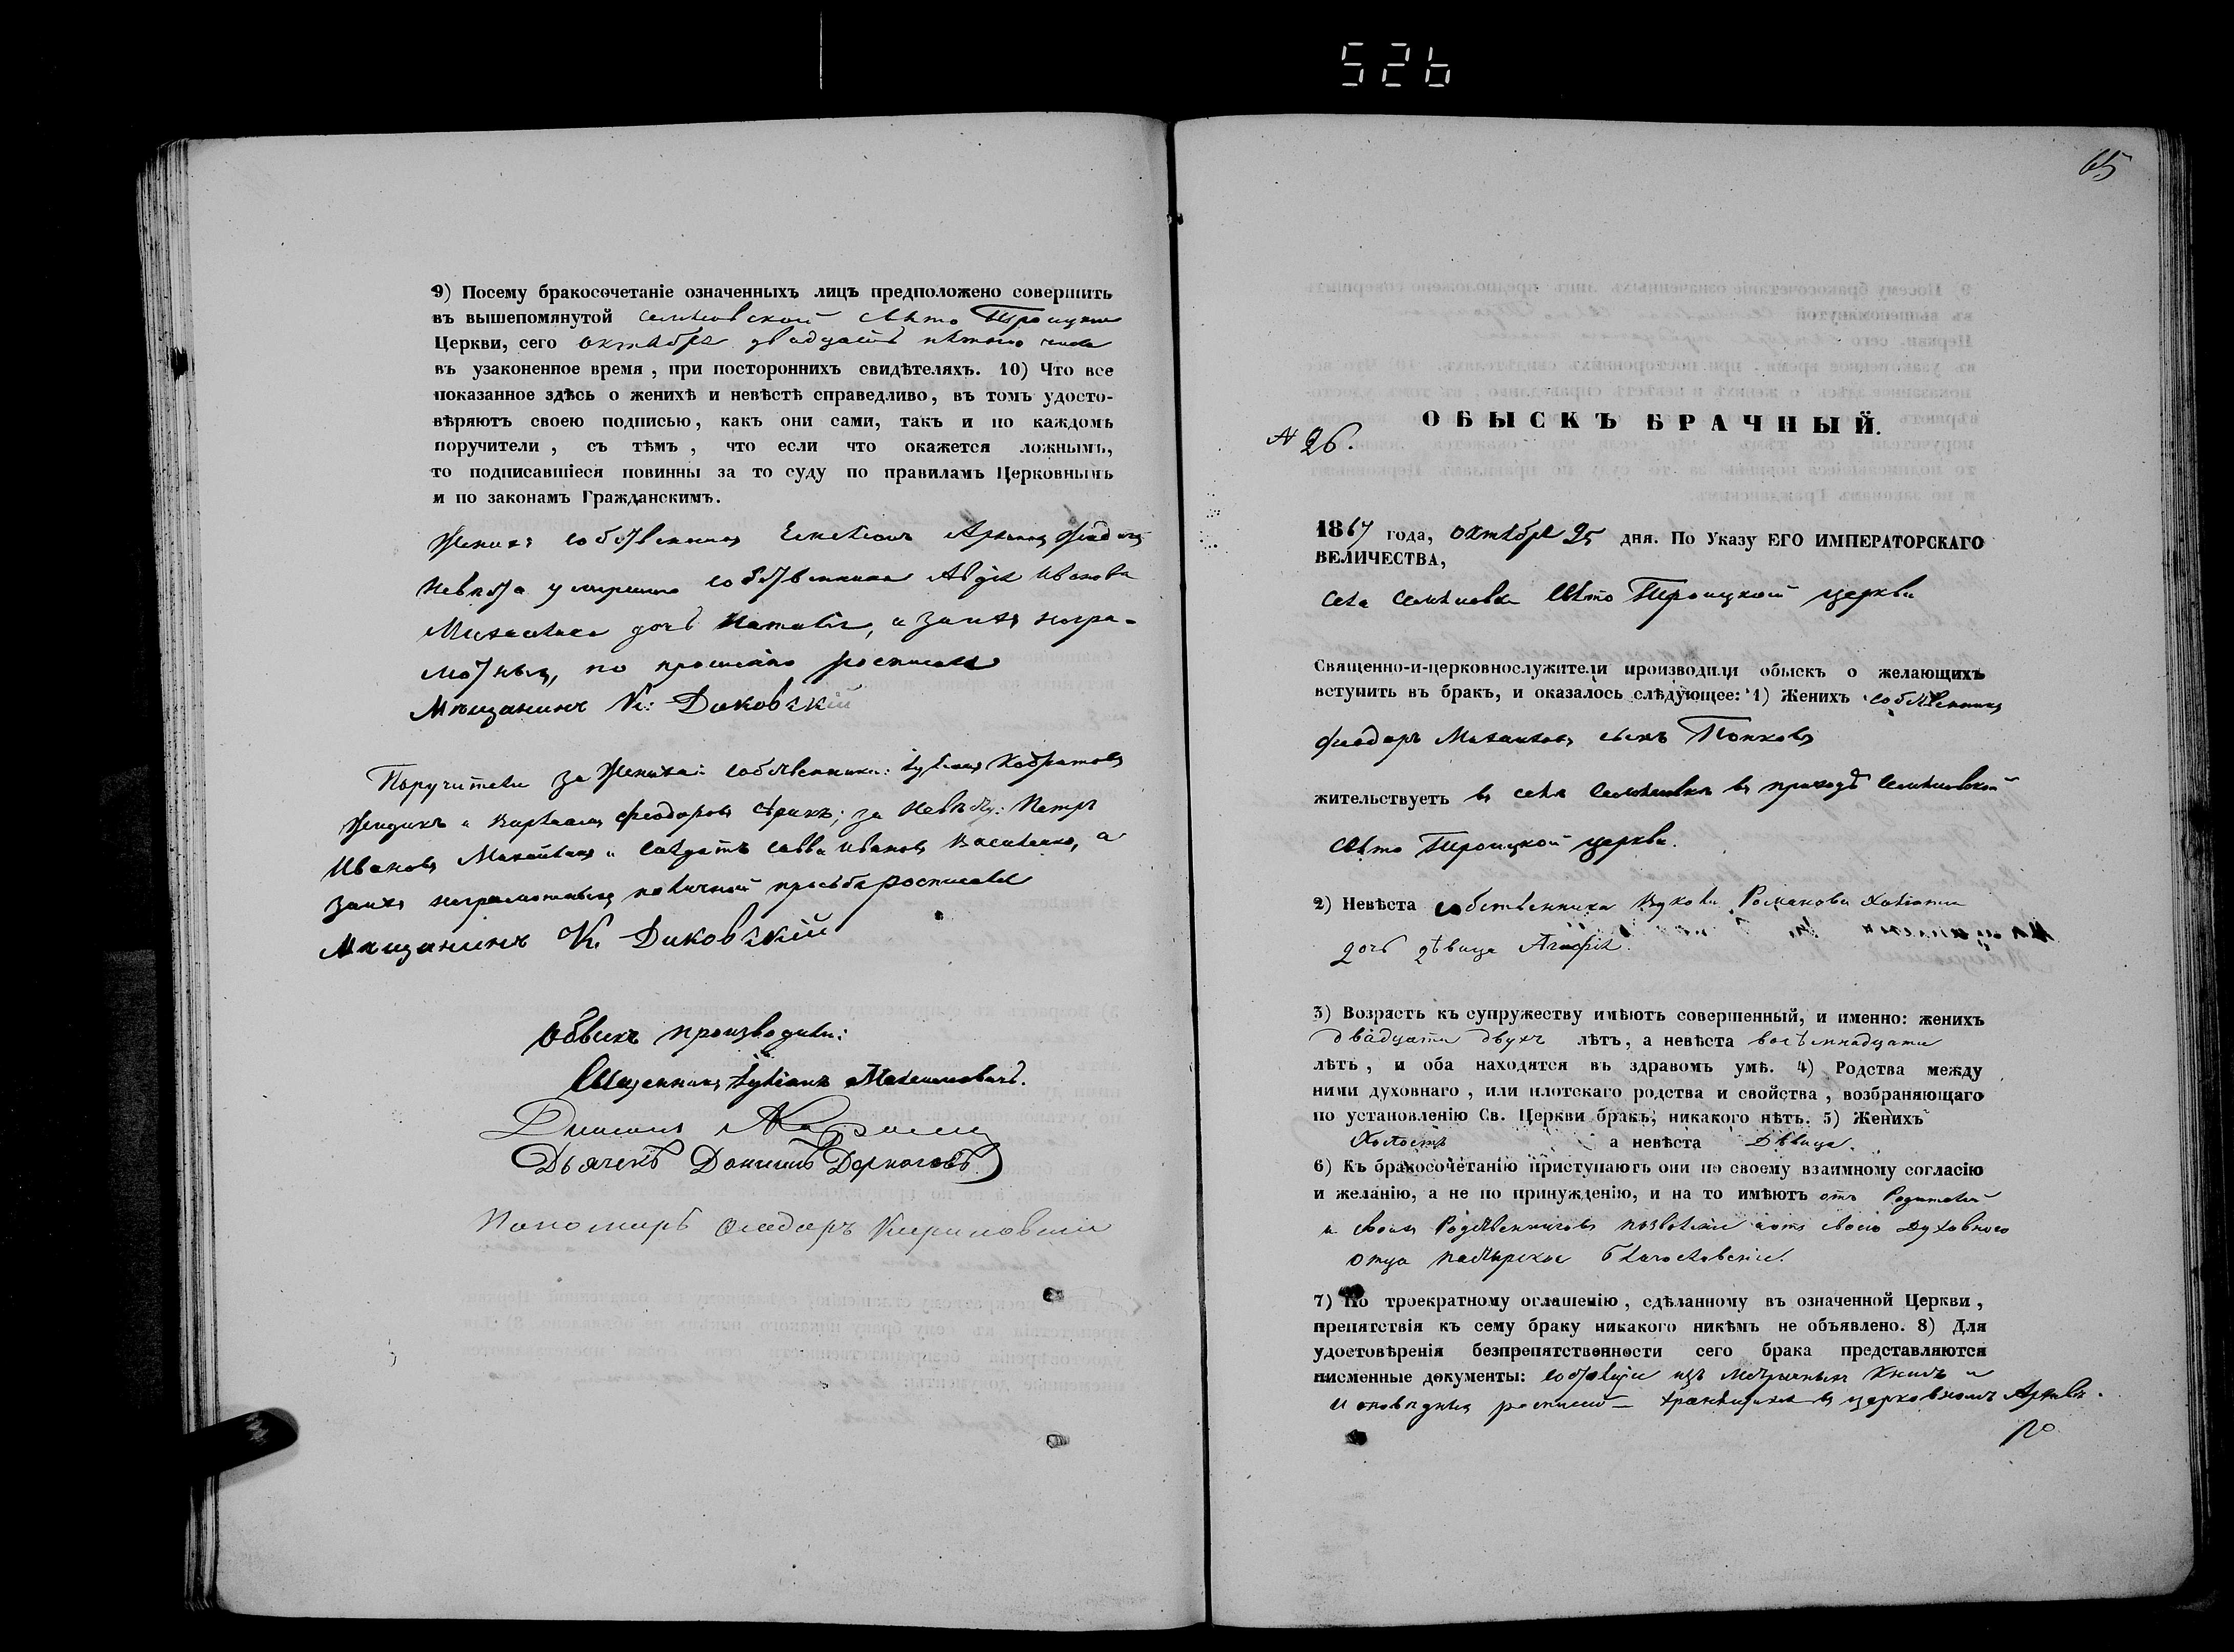 526
9) Посему бракосочетаніе означенныхъ лицъ предположено совершить
въ вышепомянутой Свято Троицкой
Церкви, сего октября двадцать пятаго числа
въ узаконенное время, при постороннихъ свидѣтеляхъ. 10) Что все
показанное здѣсь о женихѣ и невѣстѣ справедливо, въ томъ удосто-
вѣряютъ своею подписью, какъ они сами, такъ и по каждомъ
поручители, съ тѣмъ, что если что окажется ложнымъ,
то подписавшіеся повинны за то суду по правиламъ Церковнымъ
и по законамъ Гражданскимъ.
Женихъ собственникъ
Невѣста умершаго собственника Ивановa
дочь Наталія, а за нихъ негра-
мотныхъ, по прошенію росписался
Мѣщанинъ К: Диковскій
Поручители за Жениха: собственники:
Жидикъ и Феодоровъ за Невѣсту: Петръ
Ивановъ и Савва Ивановъ Василенко, а
за нихъ неграмотныхъ по личной просьбѣ росписался
Мѣщанинъ К. Диковскій
Обыскъ производили:
Священникъ Іуліанъ Максимовичъ.
Дьячекъ Даніилъ
Пономарь Ѳеодоръ
65
ОБЫСКЪ БРАЧНЫЙ.
N 26.
1867 года, октября 25 дня. По Указу ЕГО ИМПЕРАТОРСКАГО
ВЕЛИЧЕСТВА,
Села Свято Троицкой церкви
Священно-и-церковнослужители производили обыскъ о желающихъ
вступить въ бракъ, и оказалось слѣдующее: 1) Женихъ собственникъ
Феодоръ Михаиловъ сынъ Попковъ
жительствуетъ въ селѣ въ приходѣ
Свято Троицкой церкви.
2) Невѣста собственника Романова
дочь дѣвица Агафія.
3) Возрастъ къ супружеству имѣютъ совершенный, и именно: женихъ
двадцати двухъ лѣтъ, а невѣста восьмнадцати
лѣтъ, и оба находятся въ здравомъ умѣ. 4) Родства между
ними духовнаго, или плотскаго родства и свойства, возбраняющаго
по установленію Св. Церкви бракъ, никакого нѣтъ. 5) Женихъ
Холостъ а невѣста Дѣвица.
6) Къ бракосочетанію приступаютъ они по своему взаимному согласію
и желанію, а не по принужденію, и на то имѣютъ отъ Родителей
и своихъ Родственниковъ позволеніе и отъ своего Духовного
отца пастырское благословеніе.
7) По троекратному оглашенію, сдѣланному въ означенной Церкви,
препятствія къ сему браку никакого никѣмъ не объявлено. 8) Для
удостовѣренія безпрепятственности сего брака представляются
писменные документы: изъ Метричныхъ Книгъ и
Исповѣдныхъ росписей — хранящихся въ церковномъ Архивѣ.